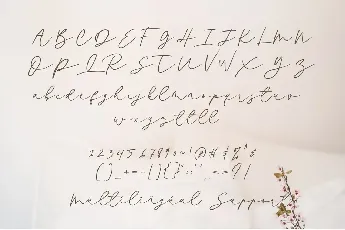 A B C D E F G H I J K L M N
O P Q R S T U V W X Y Z
a b c d e f g h i j k l m n o p q r s t u v
w x y z
1 2 3 4 5 6 7 8 9 0
Multilingual Support